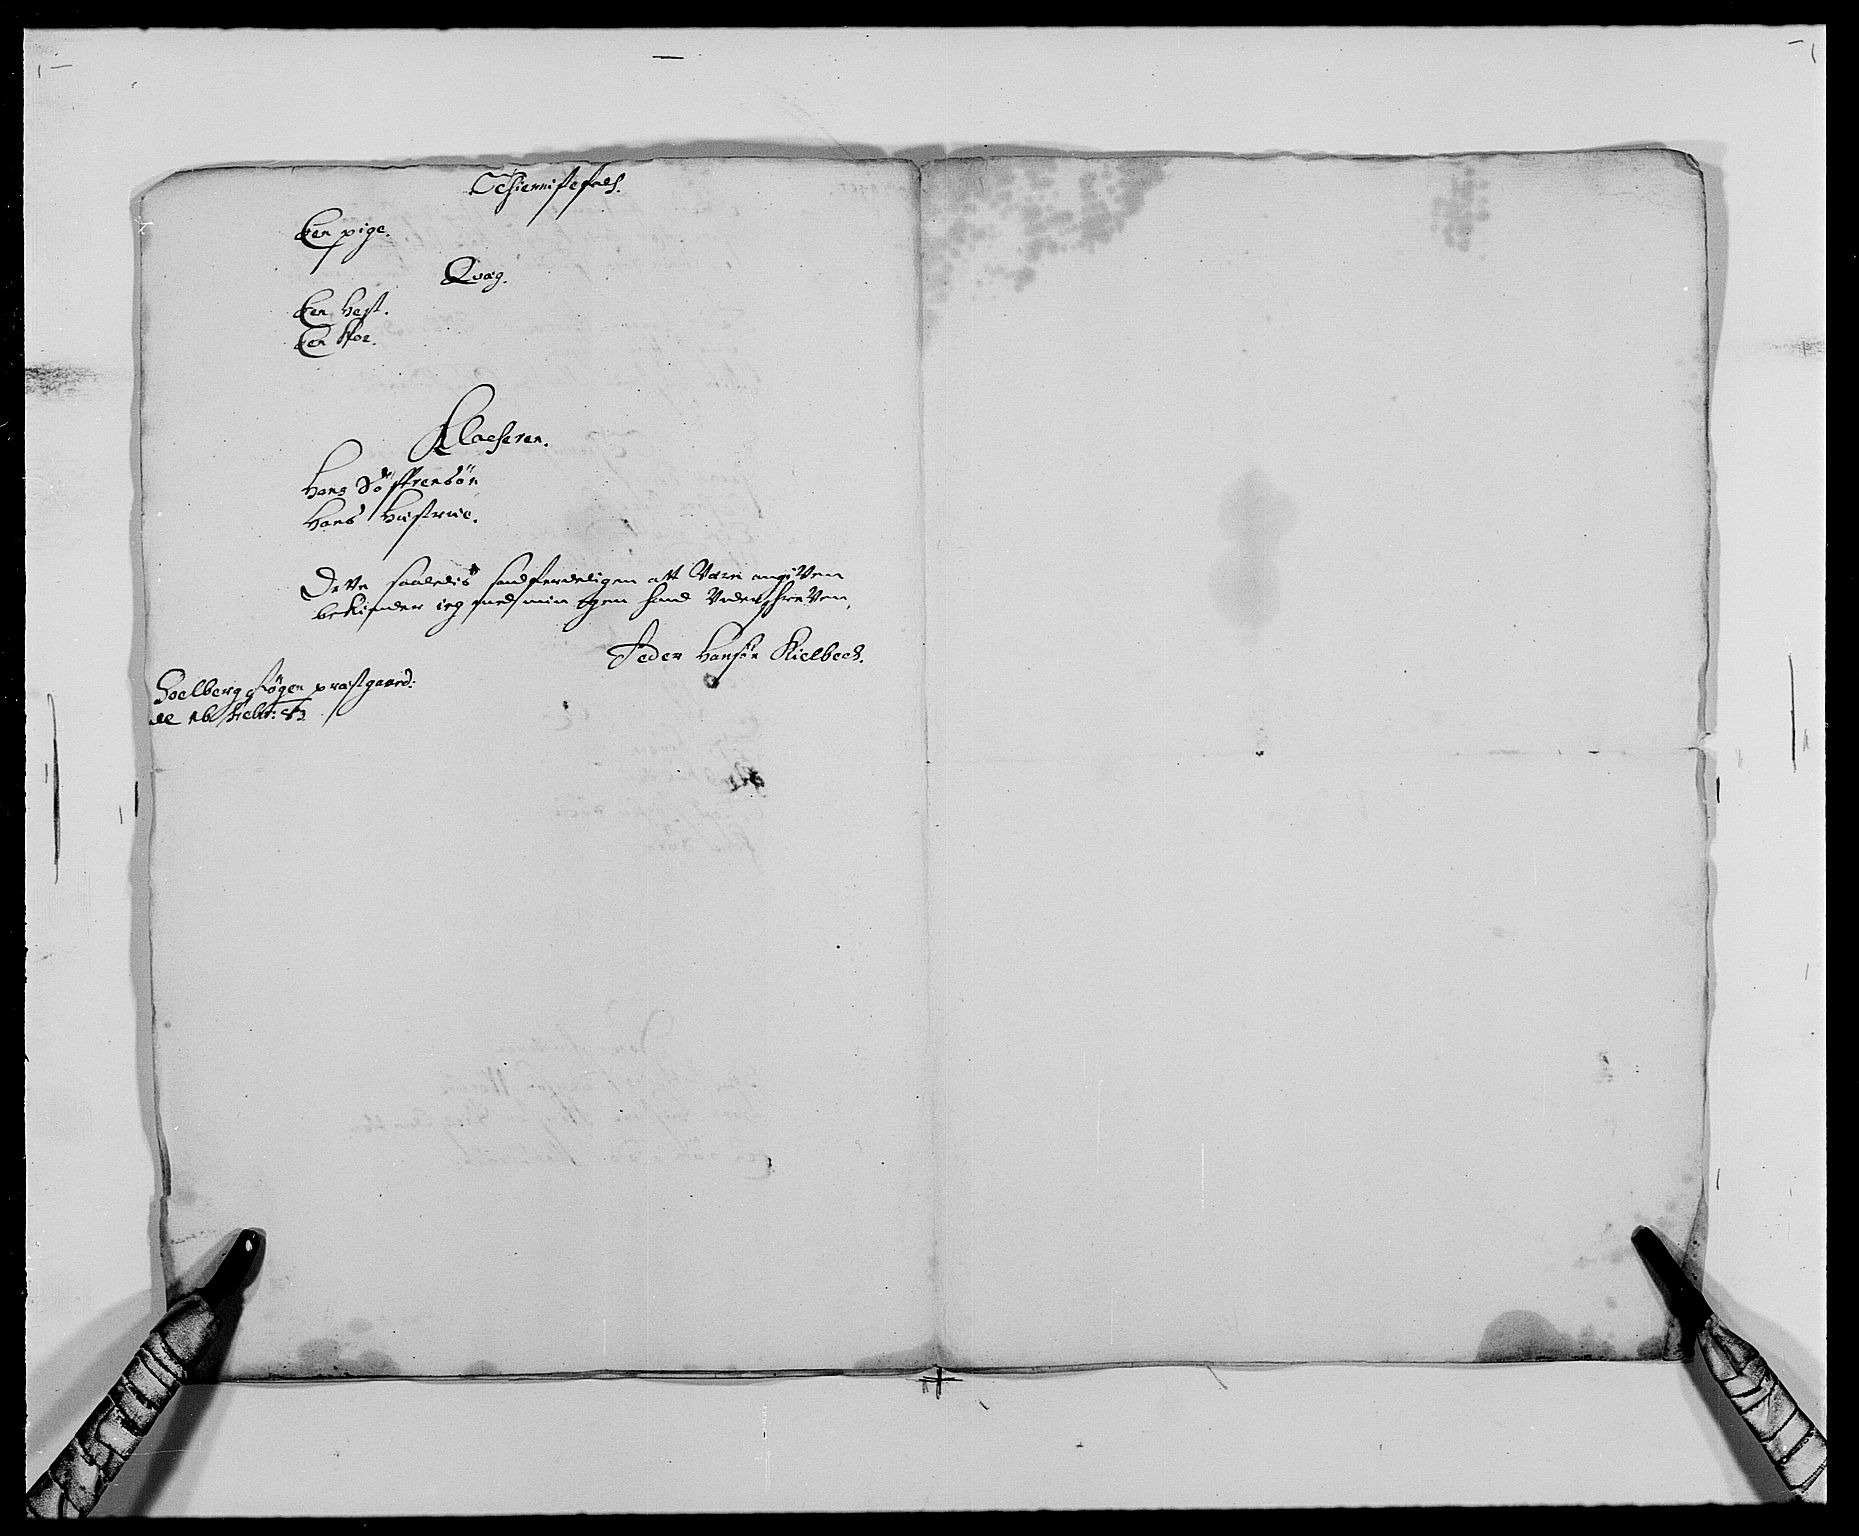 Tschienistefolch.
Een pige.
Qvæg.
Een hest.
Een Koe.
Klocheren.
Hans Söffrensön
Hans Hustrue.
Dette saaledis sandferdeligen att Være angiVem
bekiender ieg med min egen hand VnderschreVen,
Peder Hansøn Kielbech.
Soelberg søgen præstgaard:
de 16 Febr: 82